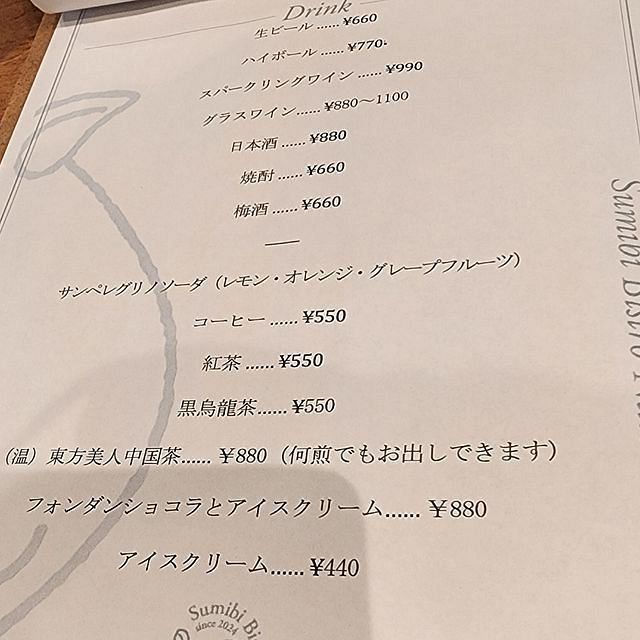 Drink
生ビール ...... ¥660
ハイボール ...... ¥770
スパークリングワイン ...... ¥990
グラスワイン...... ¥880～1100
日本酒 ...... ¥880
焼酎 ...... ¥660
梅酒 ...... ¥660
サンペレグリノソーダ（レモン・オレンジ・グレープフルーツ）
コーヒー ...... ¥550
紅茶 ...... ¥550
黒烏龍茶...... ¥550
（温）東方美人中国茶...... ¥880（何煎でもお出しできます）
フォンダンショコラとアイスクリーム...... ¥880
アイスクリーム...... ¥440
Sumibi Bi
since 2024
Sumibi Bistro